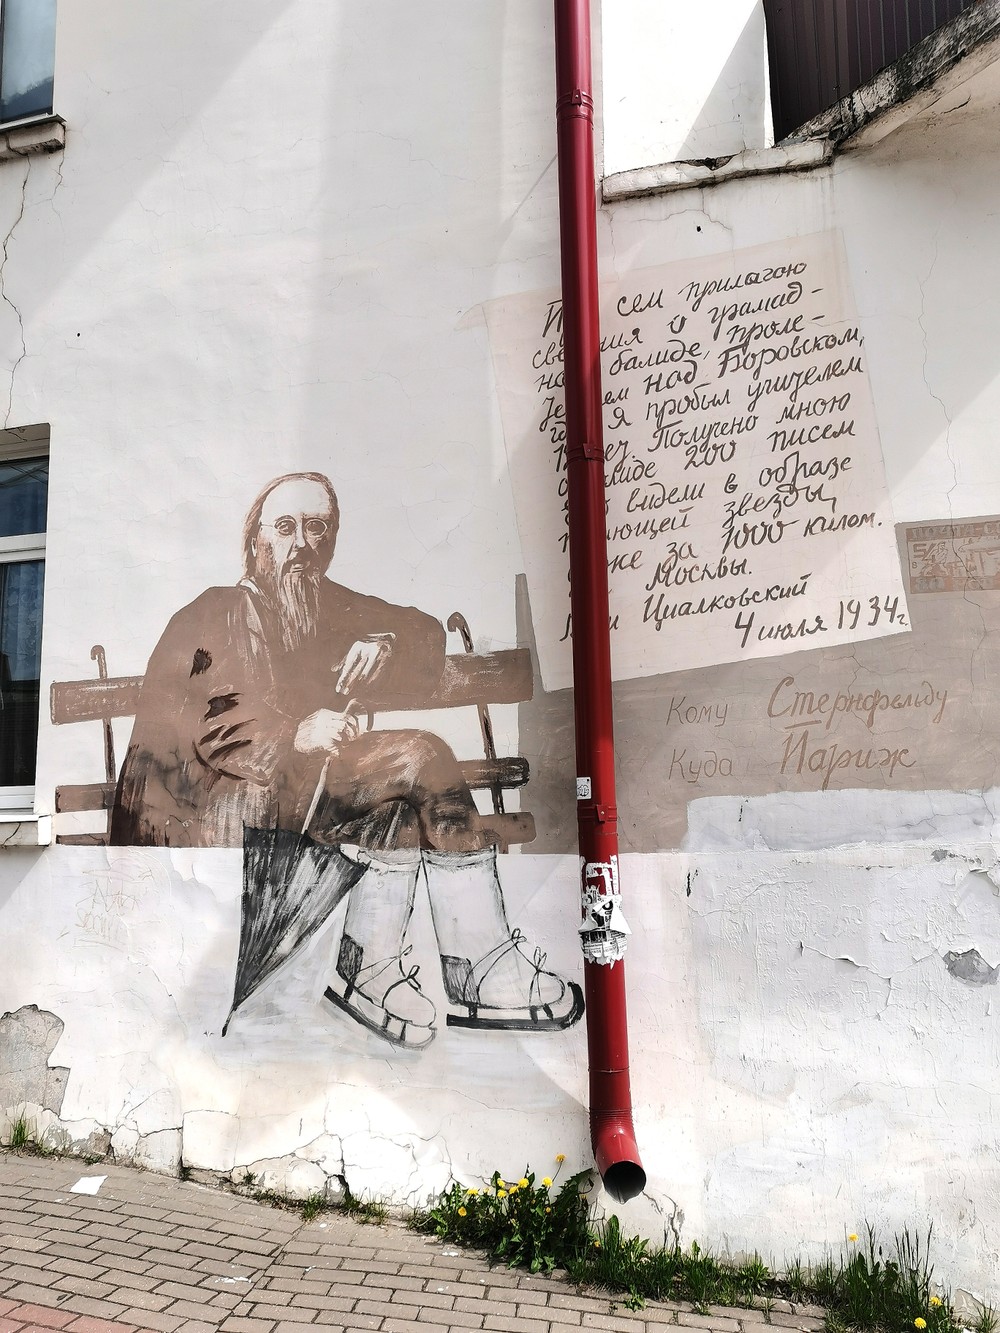 сем прилагаю
све ния о грамад-
на балиде, проле-
те ем над Боровском,
я пробыл учителем
Получено мною
лиде 200 писем
видели в образе
ющей звезды,
же за 1000 килом.
Москвы.
Циалковский
4 июля 1934г.
ПОЧТА
Кому Стернфельду
Куда Париж